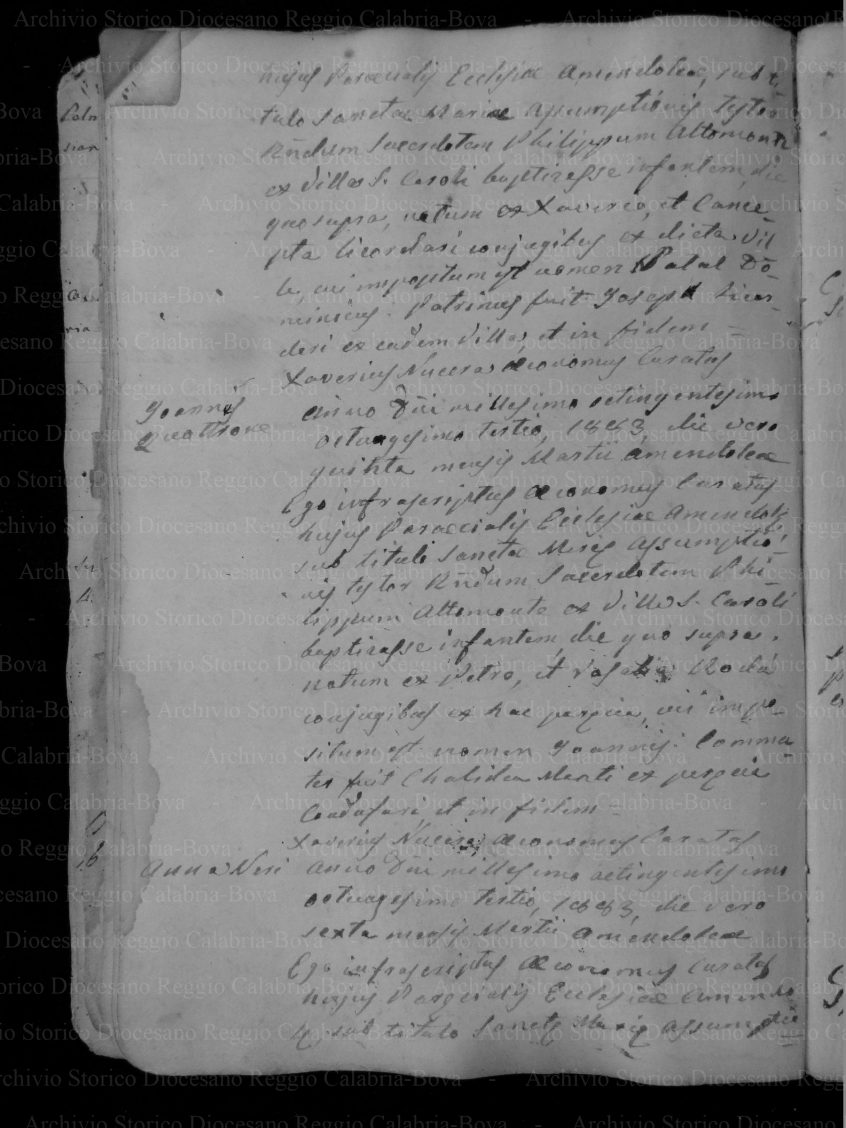 hujus Paroecialis Ecclesiae Amendoleae, sub ti
tulo Sanctae Mariae Assumptionis testor
Rñdum Sacerdotem Philippum Altomonte
ex Villa S. Caroli baptizasse infantem, die
quo supra, natum ex Xaverio, et Conce
pta Licordari conjugibus ex dicta Vil
la, cui impositum est nomen Natal Do
minicus. Patrinus fuit Joseph Licor
dari ex eadem Villa, et in fidem =
Xaverius Nucera oeconomus Curatus
Joannes
Quattrone
Anno Dñi millesimo octingentesimo
octuagesimo tertio, 1883, die vero
quinta mensis Martii Amendoleae
Ego infrascriptus oeconomus Curatus
hujus Paroecialis Ecclesiae Amendole
sub titulo Sanctae Mariae Assumptio
nis testor Rñdum Sacerdotem Phi
lippum Altomonte ex Villa S. Caroli
baptizasse infantem, die quo supra,
natum ex Petro, et Rosalia Rodà
conjugibus ex hac paroecia, cui impo
situm est nomen Joannes. Comma
ter fuit Marti ex paroecia
Condofuri, et in fidem =
Xaverius Nucera oeconomus Curatus
Anna Neri
Anno Dñi millesimo octingentesimo
octuagesimo tertio, 1883, die vero
sexta mensis Martii Amendoleae
Ego infrascriptus oeconomus Curatus
hujus Paroecialis Ecclesiae Amendo
lę sub titulo Sanctę Marię Assumptio